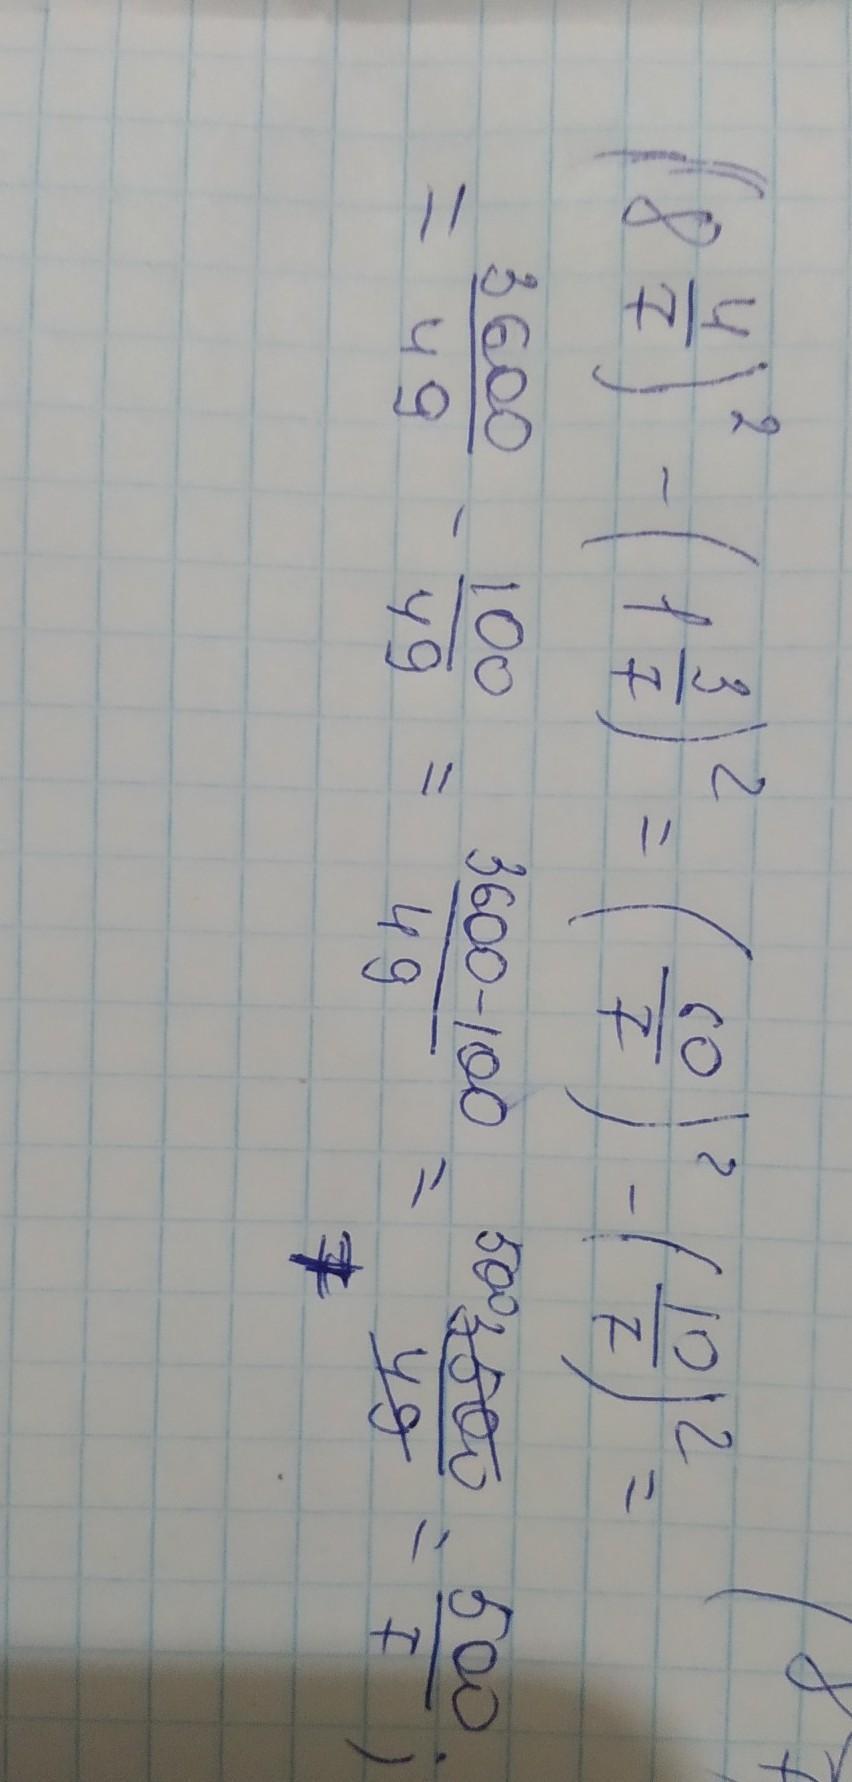 (8 4/7)² - (1 3/7)² = (60/7)² - (10/7)² =
= 3600/49 - 100/49 = 3600-100/49 = 500 3500/49 7 = 500/7;
(8 7